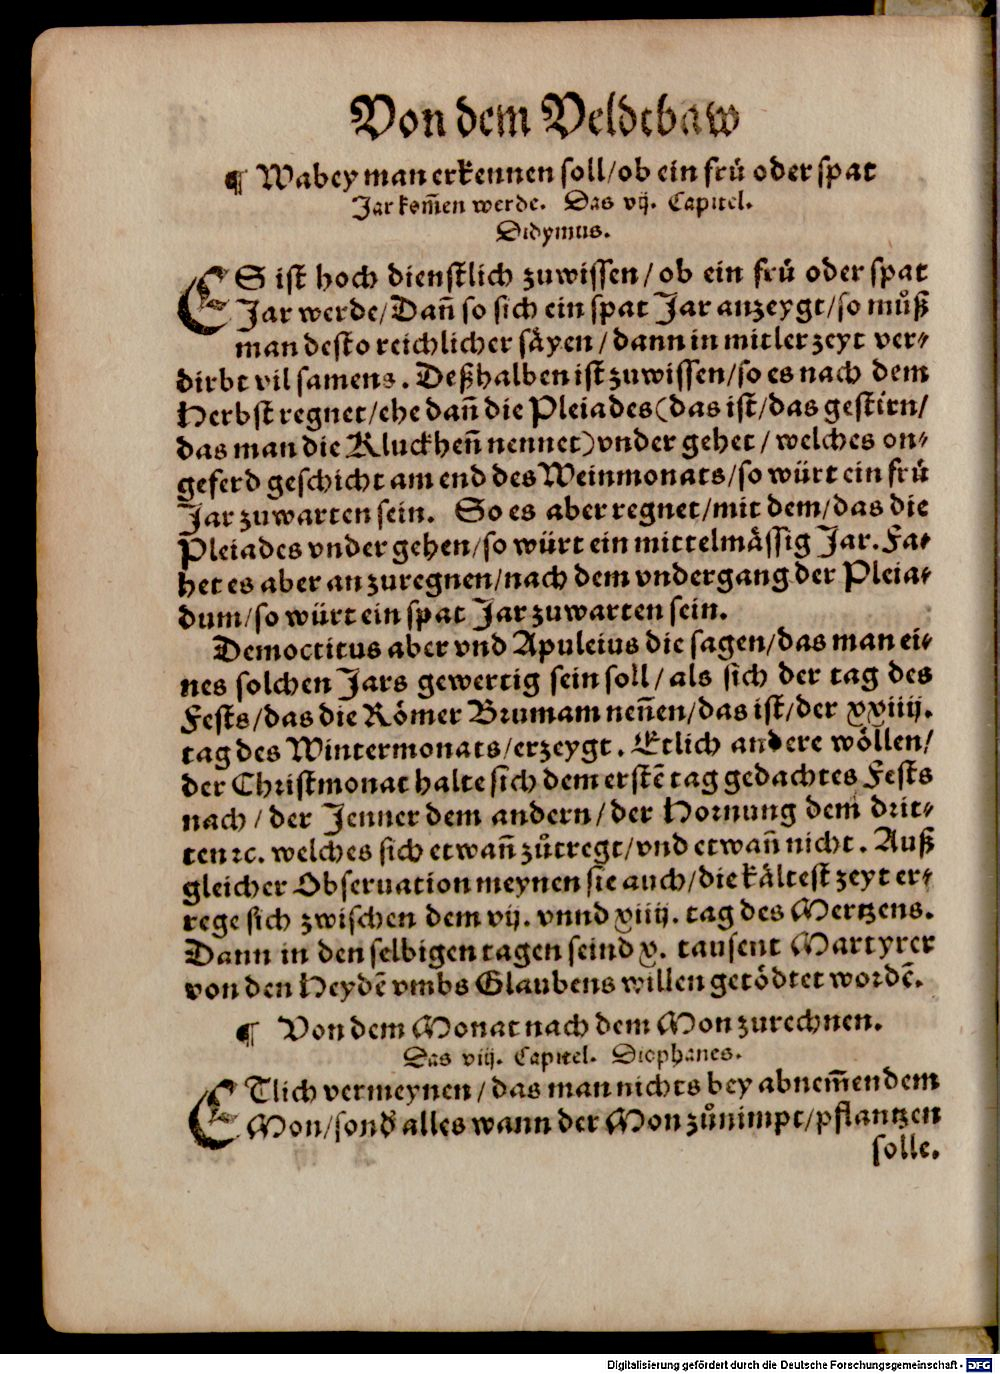 Von dem Veldtbaw
¶ Wabey man erkennen soll/ob ein frů oder spat
Jar kom̃en werde. Das vij. Capitel.
Didymus.
ES ist hoch dienstlich zuwissen/ ob ein frů oder spat
Jar werde/Dañ so sich ein spat Jar anzeygt/so můß
man desto reichlicher såyen/dann in mitler zeyt ver-
dirbt vil samens. Deßhalben ist zuwissen/so es nach dem
Herbst regnet/ehe dañ die Pleiades(das ist/das gestirn/
das man die Kluckheñ nennet)vnder gehet/welches on-
geferd geschicht am end des Weinmonats/so würt ein frů
Jar zuwarten sein. So es aber regnet/mit dem/das die
Pleiades vnder gehen/so würt ein mittelmåssig Jar. Fa-
het es aber an zuregnen/nach dem vndergang der Pleia-
dum/so würt ein spat Jar zuwarten sein.
Democtitus aber vnd Apuleius die sagen/das man ei-
nes solchen Jars gewertig sein soll/als sich der tag des
Fests/das die Römer Brumam neñen/das ist/der xxiiij.
tag des Wintermonats/erzeygt. Etlich andere wöllen/
der Christmonat halte sich dem erstẽ tag gedachtes Fests
nach/der Jenner dem andern/der Hornung dem drit-
ten ꝛc. welches sich etwañ zůtregt/vnd etwañ nicht. Auß
gleicher Obseruation meynen sie auch/die kåltest zeyt er-
rege sich zwischen dem vij. vnnd xiiij. tag des Mertzens.
Dann in den selbigen tagen seind x. tausent Martyrer
von den Heydẽ vmbs Glaubens willen getödtet wordẽ.
¶ Von dem Monat nach dem Mon zurechnen.
Das viij. Capitel. Diophanes.
ETlich vermeynen/das man nichts bey abnem̃en dem
Mon/sonď alles wann der Mon zůnimpt/pflantzen
solle.
Digitalisierung gefördert durch die Deutsche Forschungsgemeinschaft - DFG